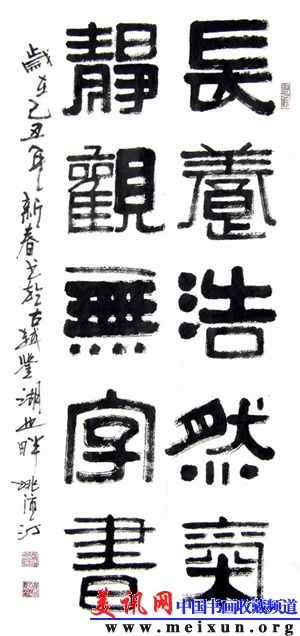 長養浩然氣
靜觀無字書
歲在己丑年新春書於古越鑒湖之畔
美讯网 中国书画收藏频道
www.meixun.org